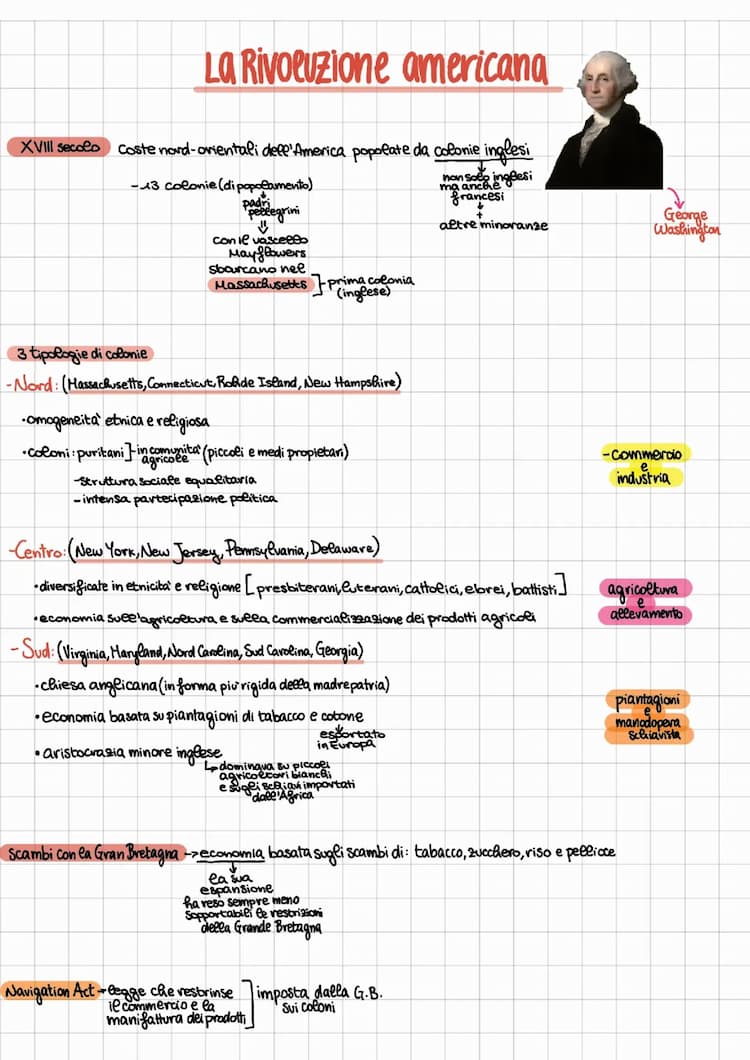 La Rivoluzione americana
XVIII secolo coste nord-orientali dell'America popolate da colonie inglesi
non solo inglesi
ma anche
francesi
+
altre minoranze
George
Washington
-13 colonie (di popolamento)
padri
pellegrini
con le vascello
Mayflowers
sbarcano nel
Massachusetts
prima colonia
(inglese)
3 tipologie di colonie
-Nord: (Massachusetts, Connecticut, Rohde Island, New Hampshire)
•omogeneità etnica e religiosa
•coloni: puritani] in comunità (piccoli e medi propietari)
agricole
-struttura sociale equalitaria
-intensa partecipazione politica
-commercio
e
industria
-Centro: (New York, New Jersey, Pennsylvania, Delaware)
•diversificate in etnicità e religione [presbiterani, luterani, cattolici, ebrei, battisti]
•economia sull'agricoltura e sulla commercializzazione dei prodotti agricoli
agricoltura
e
allevamento
-Sud: (Virginia, Maryland, Nord Carolina, Sud Carolina, Georgia)
•chiesa anglicana (in forma più rigida della madrepatria)
•economia basata su piantagioni di tabacco e cotone
esportato
in Europa
•aristocrazia minore inglese
dominava su piccoli
agricoltori bianchi
e sugli schiavi importati
dall'Africa
piantagioni
e
manodopera
schiavista
Scambi con la Gran Bretagna → economia basata sugli scambi di: tabacco, zucchero, riso e pellicce
la sua
espansione
ha reso sempre meno
sopportabili le restrizioni
della Grande Bretagna
Navigation Act → legge che restrinse
il commercio e la
manifattura dei prodotti
imposta dalla G.B.
sui coloni